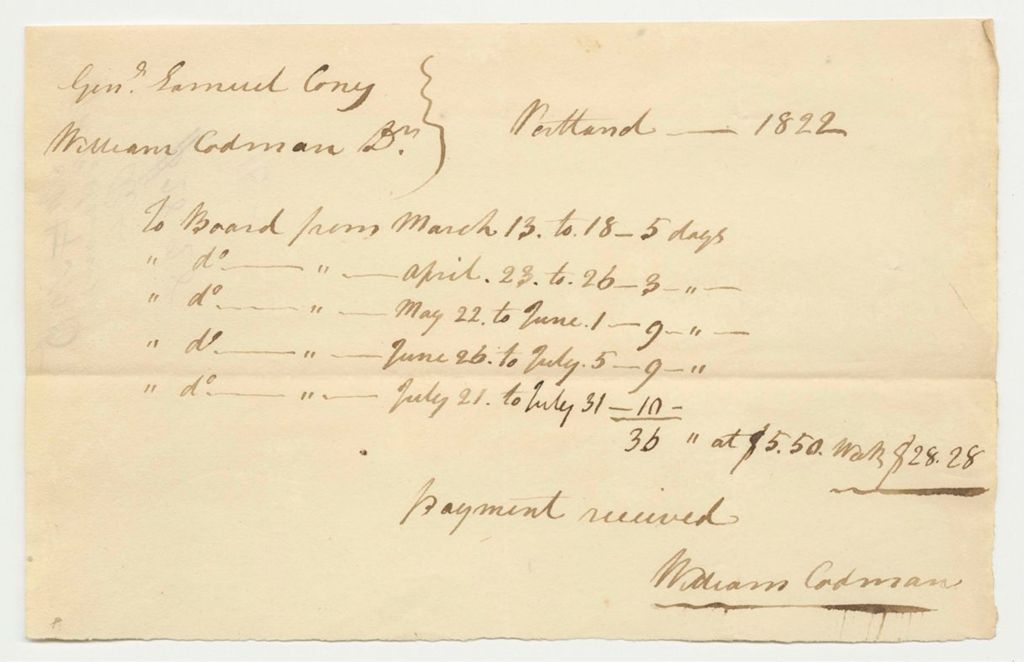 Genl. Samuel Cony
William Codman Dr.
Portland — 1822
To Board from March 13. to. 18 – 5 days
" do. — " — april. 23. to. 26 – 3 – " –
" do — " — May 22. to June. 1 – 9 – " –
" do — " — June 26. to July. 5 – 9 – "
" do. — " — July 21. to July 31 – 10 –
36 " at $5.50. Week $28.28
payment received
William Codman